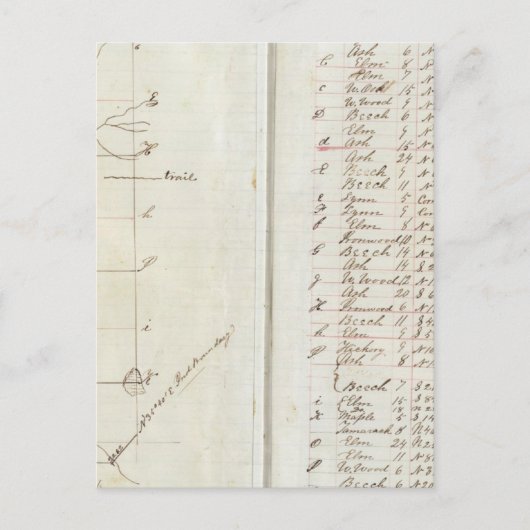 6
E
H
trail
h
P
i
K
N 35°40' E. Ind Boundary
Ash 6 N
C Elm 8 N
Elm 7 N
c W. Oak 15 N
W. Wood 9 N
D Beech 6 N
Elm 9 N
d Ash 15 N
Ash 24 N
E Beech 9 N
Beech 11 N
e Lynn 5 Cor
F Lynn 9 Cor
f Elm 8 N
Ironwood 10 N
G Beech 14 N
Ash 14 S 2
g W. Wood 12 N 1
Ash 20 S 6
H Ironwood 6 N 1
Beech 11 S 4
h Elm 9 S 5
P Hickory 9 N 10
Ash 8 N 1
Beech 7 S 2
i Elm 15 S 8
Do 18 N 2
K Maple 5 S 14
Tamarack 8 N 4
O Elm 24 N 2
Elm 11 N 8
P W. Wood 6 N 3
Beech 6 N 20